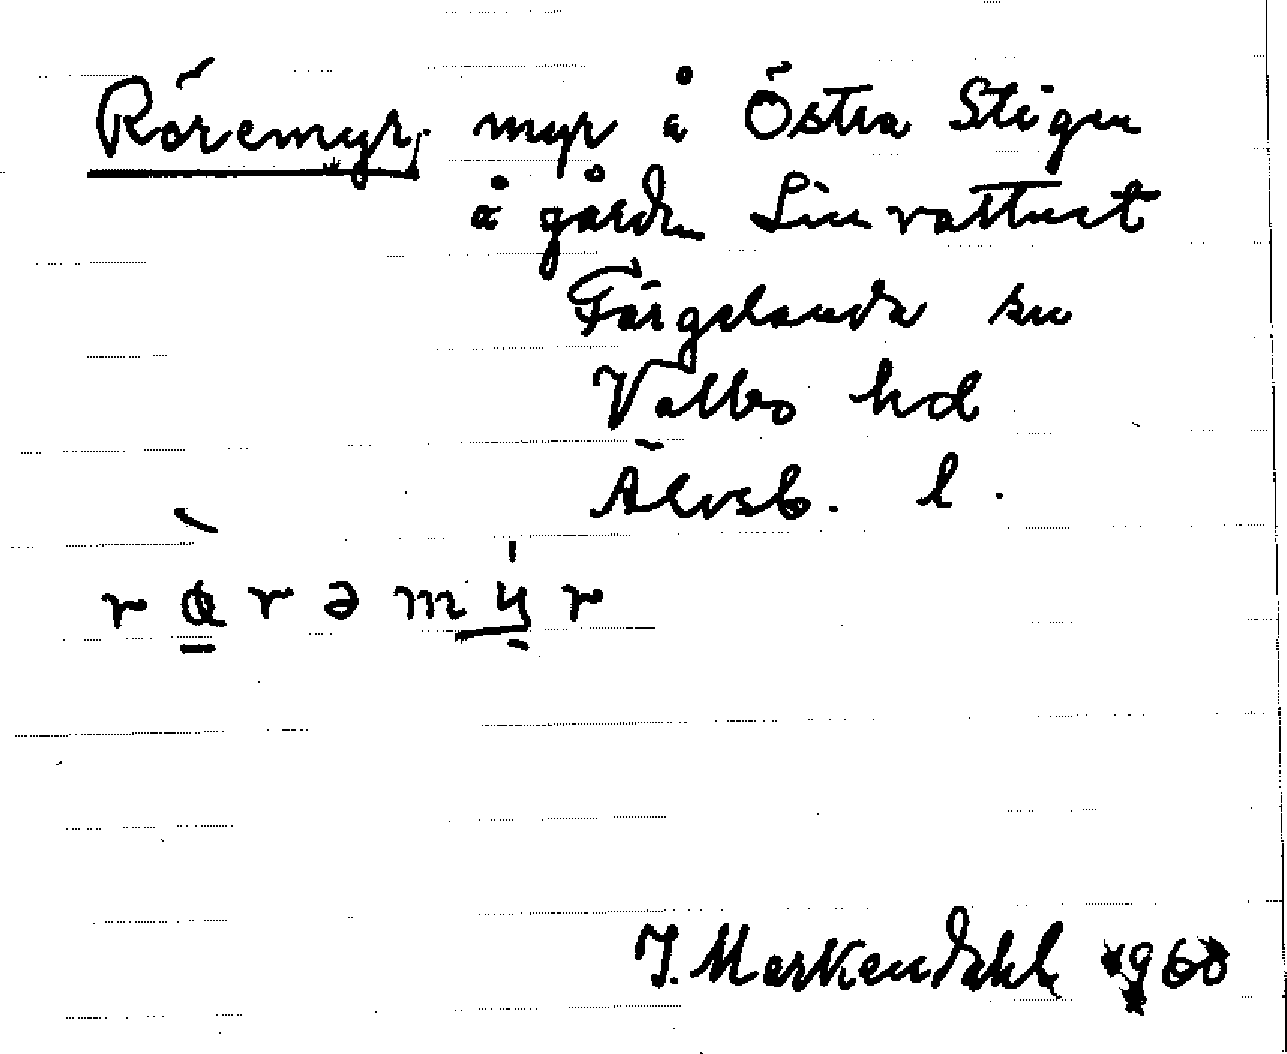 Röremyr, myr å Östra Stigen
å gården Linvattnet
Färgelanda sn
Valbo hd
Älvsb. l.
I. Markendahl 1960